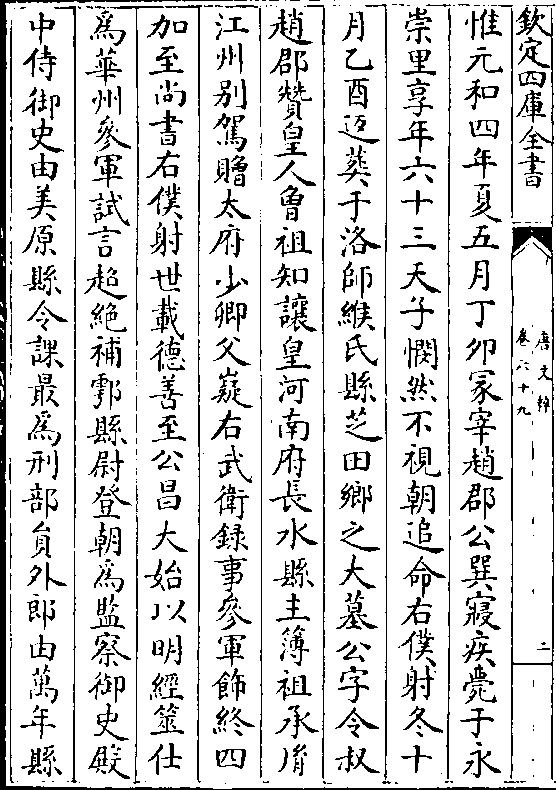 欽定四庫全書
唐文粹
卷六十九
二
惟元和四年夏五月丁卯冢宰趙郡公巽寢疾薨于永
崇里享年六十三天子憫然不視朝追命右僕射冬十
月乙酉迈葬于洛師緱氏縣芝田鄉之大墓公字令叔
趙郡贊皇人曾祖知讓皇河南府長水縣主簿祖承胤
江州别駕贈太府少卿父嶷右武衛録事參軍飾終四
加至尚書右僕射世載德善至公昌大始以明經筮仕
爲華州參軍試言超絶補鄠縣尉登朝爲監察御史殿
中侍御史由美原縣令課最爲刑部員外郎由萬年縣